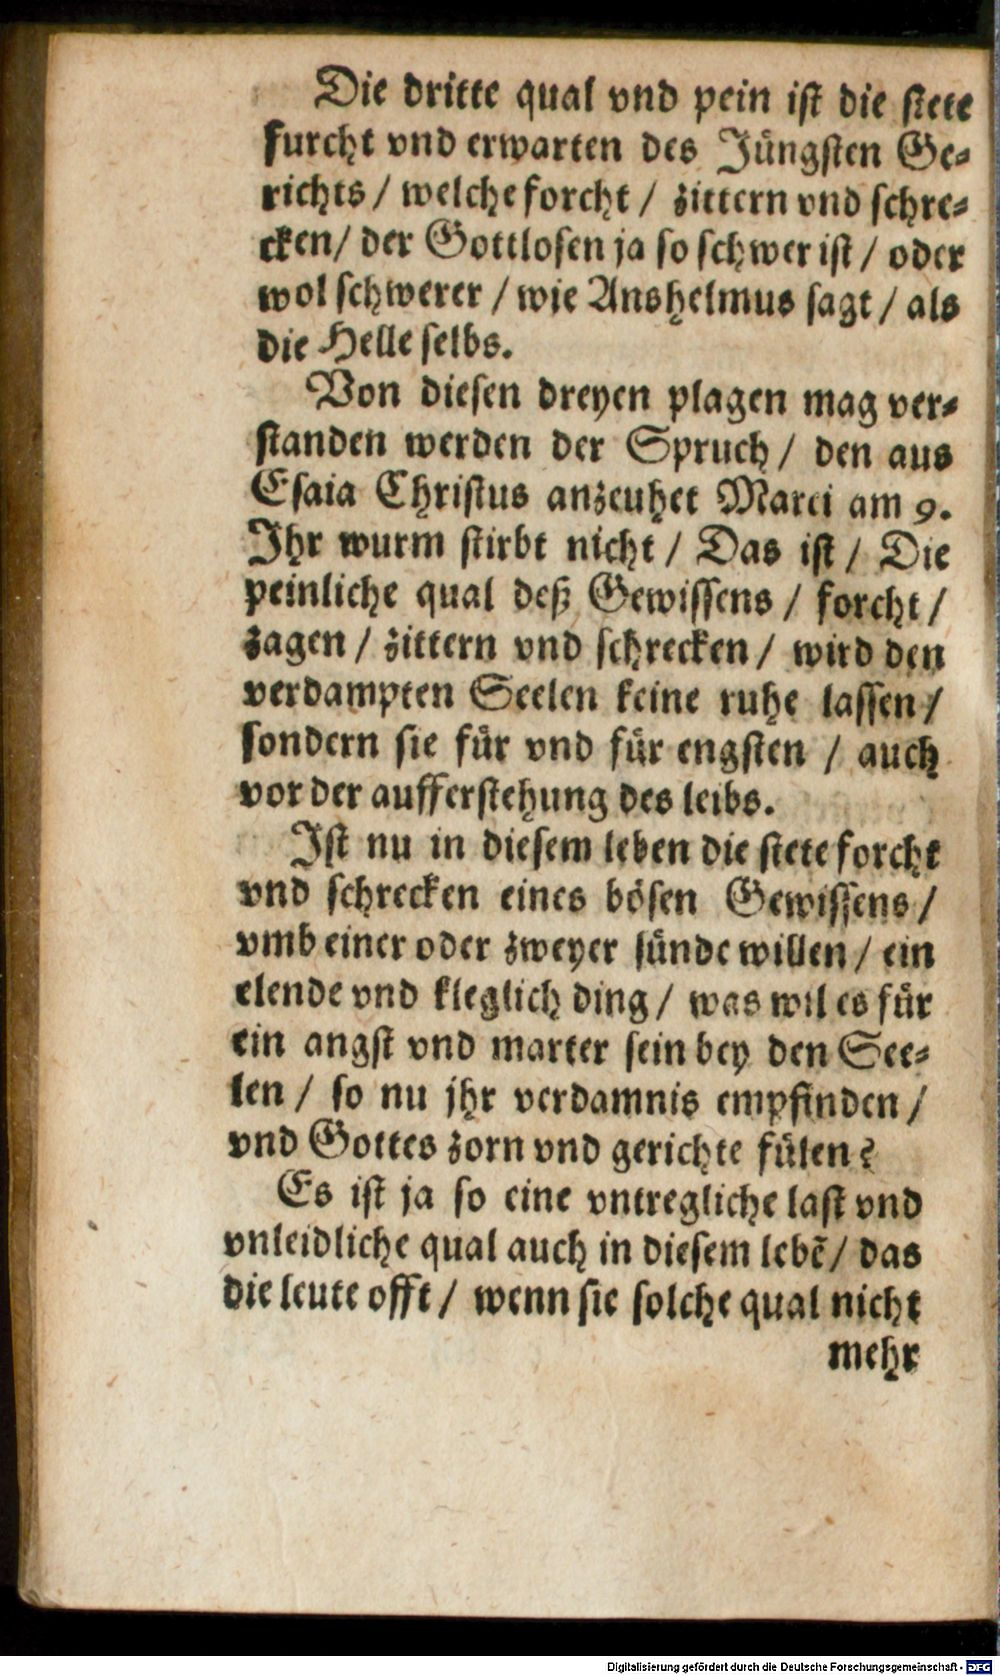 Die dritte qual vnd pein ist die stete
furcht vnd erwarten des Jüngsten Ge-
richts / welche forcht / zittern vnd schre-
cken / der Gottlosen ja so schwer ist / oder
wol schwerer / wie Anshelmus sagt / als
die Helle selbs.
Von diesen dreyen plagen mag ver-
standen werden der Spruch / den aus
Esaia Christus anzeuhet Marci am 9.
Ihr wurm stirbt nicht / Das ist / Die
peinliche qual deß Gewissens / forcht /
zagen / zittern vnd schrecken / wird den
verdampten Seelen keine ruhe lassen /
sondern sie für vnd für engsten / auch
vor der aufferstehung des leibs.
Ist nu in diesem leben die stete forcht
vnd schrecken eines bösen Gewissens /
vmb einer oder zweyer sünde willen / ein
elende vnd kleglich ding / was wil es für
ein angst vnd marter sein bey den See-
len / so nu jhr verdamnis empfinden /
vnd Gottes zorn vnd gerichte fülen?
Es ist ja so eine vntregliche last vnd
vnleidliche qual auch in diesem lebẽ / das
die leute offt / wenn sie solche qual nicht
mehr
Digitalisierung gefördert durch die Deutsche Forschungsgemeinschaft - DFG